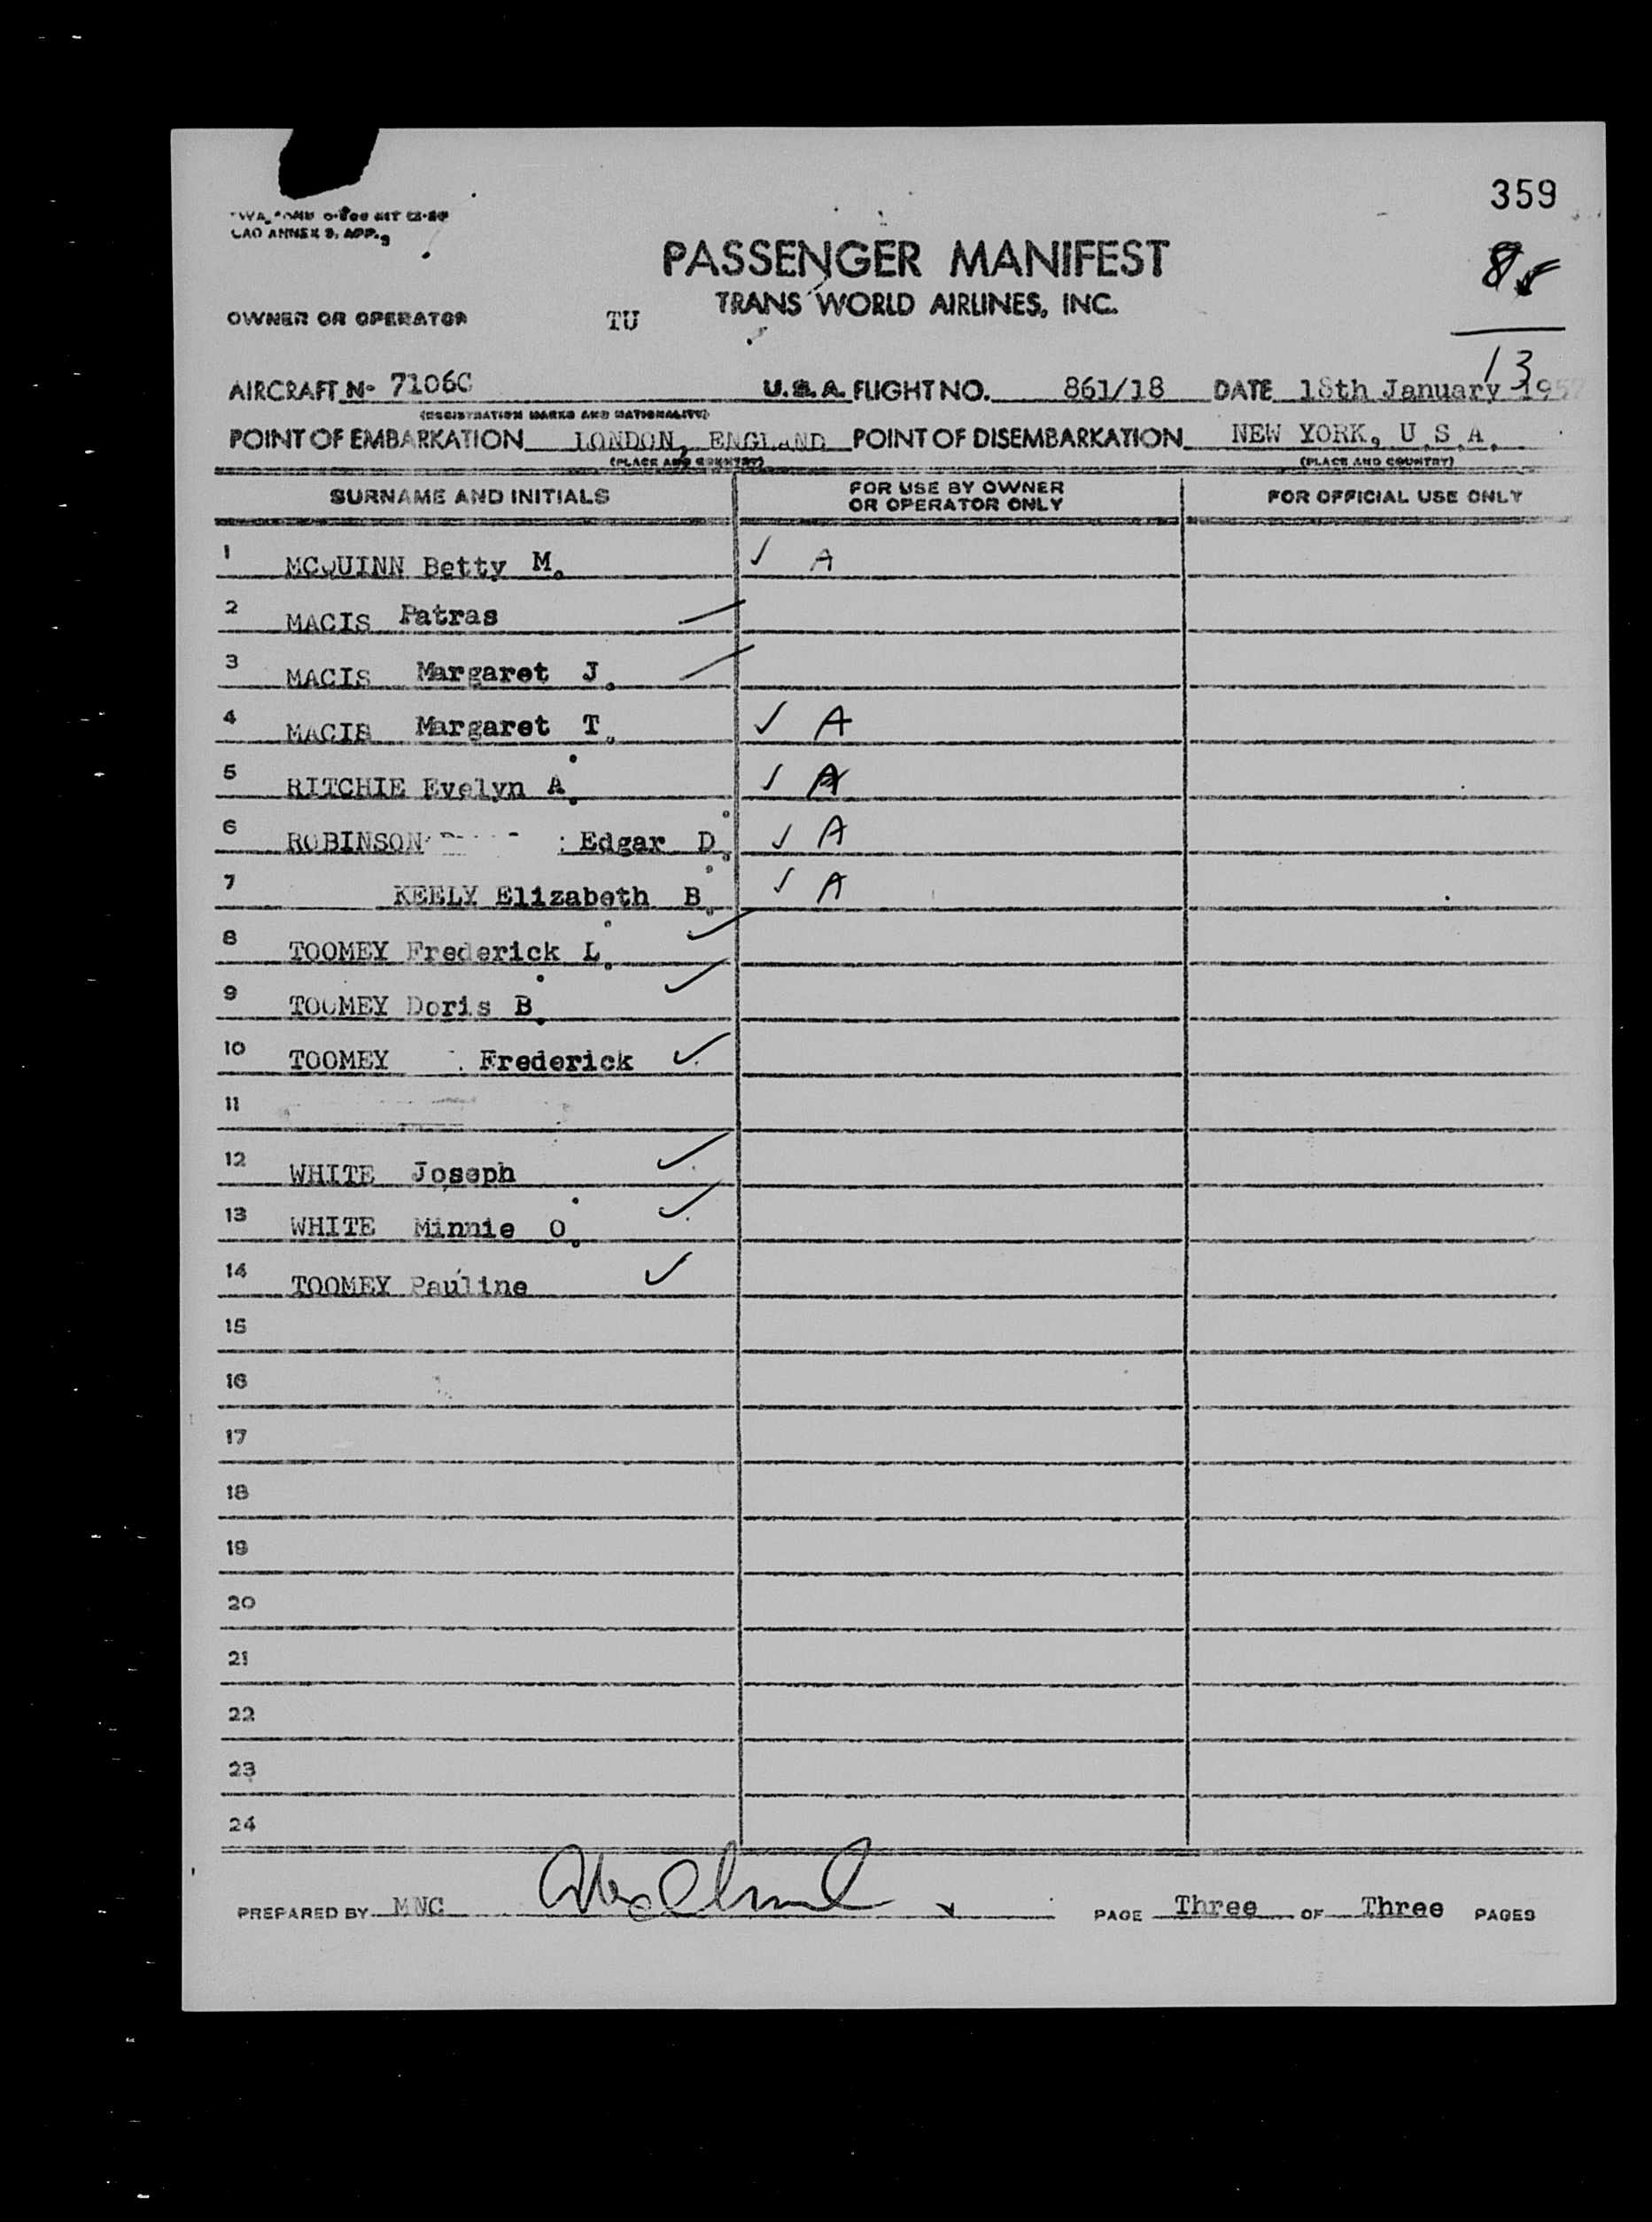 359
LAO ANNEX 9, APP. 3
PASSENGER MANIFEST
8
TRANS WORLD AIRLINES, INC.
OWNER OR OPERATOR TU
13
AIRCRAFT No 7106C U.S.A. FLIGHT NO. 861/18 DATE 18th January 195
(REGISTRATION MARKS AND NATIONALITY)
POINT OF EMBARKATION LONDON, ENGLAND POINT OF DISEMBARKATION NEW YORK, U.S.A.
(PLACE AND COUNTRY) (PLACE AND COUNTRY)
SURNAME AND INITIALS FOR USE BY OWNER OR OPERATOR ONLY FOR OFFICIAL USE ONLY
1 MCQUINN Betty M. ✓ A
2 MACIS Patras
3 MACIS Margaret J.
4 MACIS Margaret T. ✓ A
5 RITCHIE Evelyn A. ✓ A
6 ROBINSON Edgar D. ✓ A
7 KEELY Elizabeth B. ✓ A
8 TOOMEY Frederick L. ✓
9 TOOMEY Doris B. ✓
10 TOOMEY Frederick ✓
11
12 WHITE Joseph ✓
13 WHITE Minnie O. ✓
14 TOOMEY Pauline ✓
15
16
17
18
19
20
21
22
23
24
PREPARED BY MNC PAGE Three OF Three PAGES